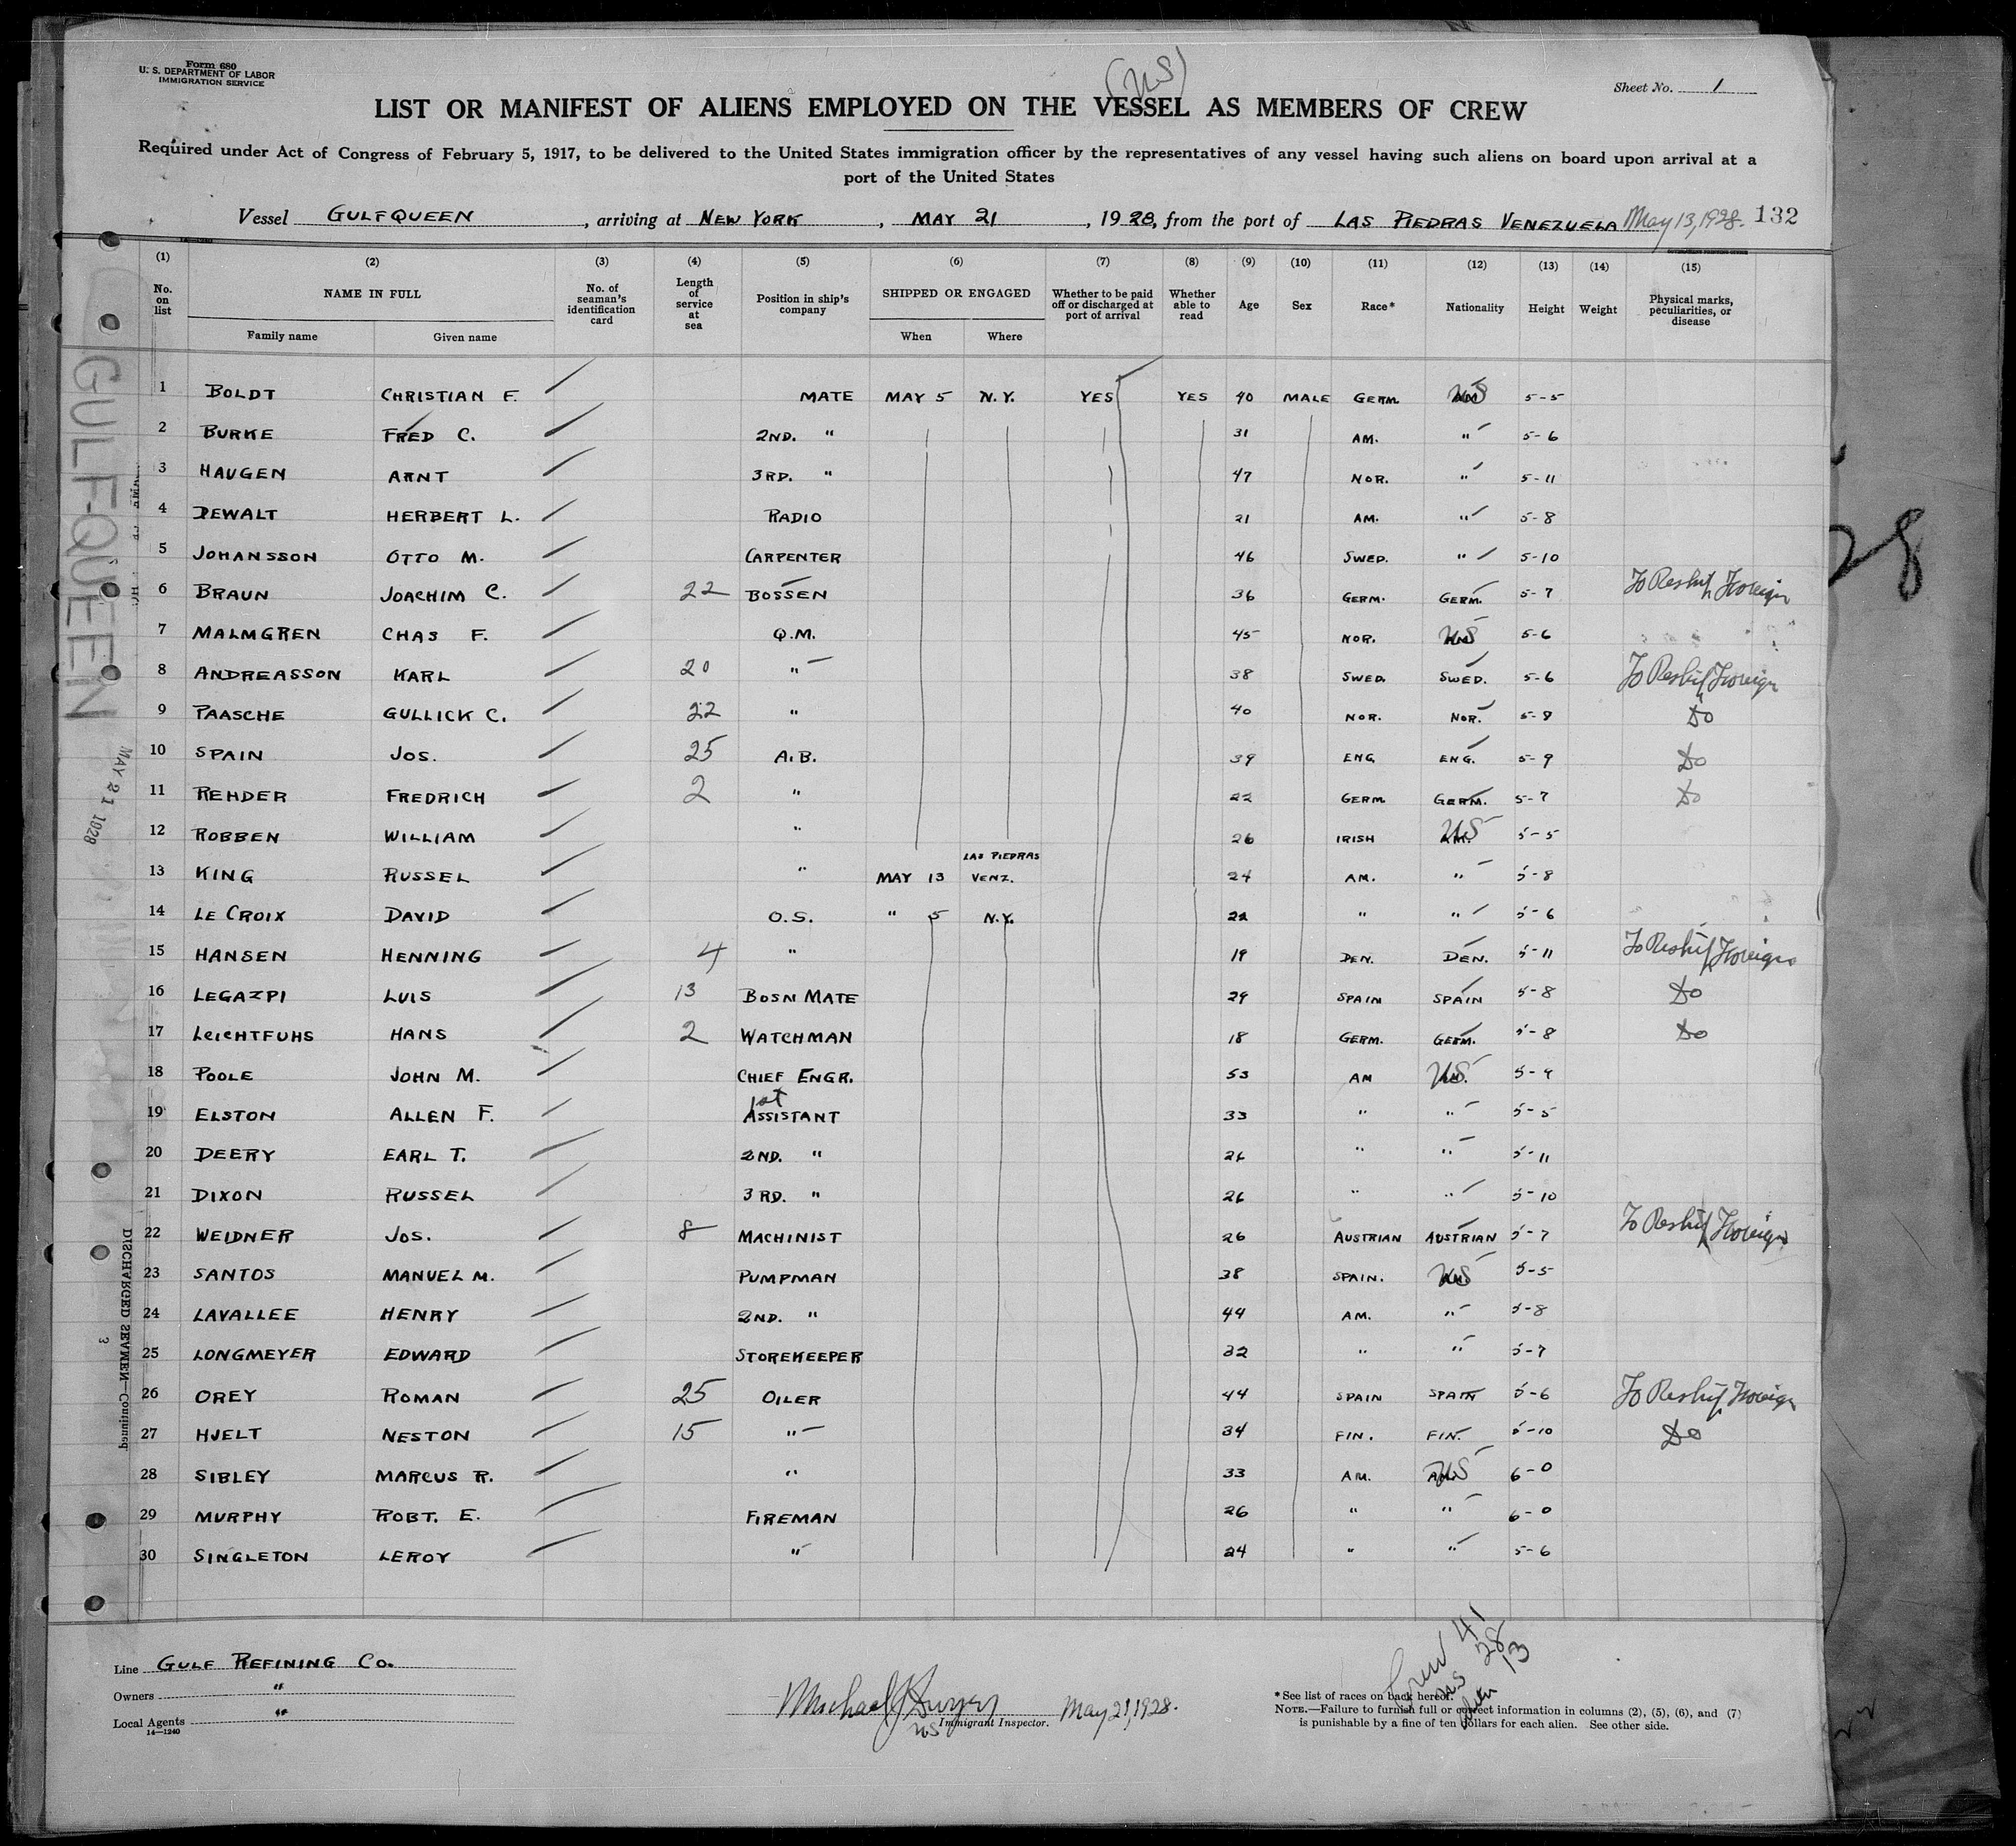 Form 680
U. S. DEPARTMENT OF LABOR
IMMIGRATION SERVICE
(US)
Sheet No. 1
LIST OR MANIFEST OF ALIENS EMPLOYED ON THE VESSEL AS MEMBERS OF CREW
Required under Act of Congress of February 5, 1917, to be delivered to the United States immigration officer by the representatives of any vessel having such aliens on board upon arrival at a
port of the United States
Vessel GULFQUEEN, arriving at NEW YORK, MAY 21, 1928, from the port of LAS PIEDRAS VENEZUELA May 13, 1928. 132
(1) (2) (3) (4) (5) (6) (7) (8) (9) (10) (11) (12) (13) (14) (15)
No. on list NAME IN FULL No. of seaman's identification card Length of service at sea Position in ship's company SHIPPED OR ENGAGED Whether to be paid off or discharged at port of arrival Whether able to read Age Sex Race* Nationality Height Weight Physical marks, peculiarities, or disease
Family name Given name When Where
1 BOLDT CHRISTIAN F. MATE MAY 5 N.Y. YES YES 40 MALE GERM. US 5-5
2 BURKE FRED C. 2ND. " 31 AM. " 5-6
3 HAUGEN ARNT 3RD. " 47 NOR. " 5-11
4 DEWALT HERBERT L. RADIO 21 AM. " 5-8
5 JOHANSSON OTTO M. CARPENTER 46 SWED. " 5-10
6 BRAUN JOACHIM C. 22 BOSSEN 36 GERM. GERM. 5-7 To Reship Foreign
7 MALMGREN CHAS F. Q.M. 45 NOR. US 5-6
8 ANDREASSON KARL 20 " 38 SWED. SWED. 5-6 To Reship Foreign
9 PAASCHE GULLICK C. 22 " 40 NOR. NOR. 5-8 Do
10 SPAIN JOS. 25 A.B. 39 ENG. ENG. 5-9 Do
11 REHDER FREDRICH 2 " 22 GERM. GERM. 5-7 Do
12 ROBBEN WILLIAM " 26 IRISH US 5-5
13 KING RUSSEL " MAY 13 LAS PIEDRAS VENZ. 24 AM. " 5-8
14 LE CROIX DAVID O.S. " 5 N.Y. 22 " " 5-6
15 HANSEN HENNING 4 " 19 DEN. DEN. 5-11 To Reship Foreign
16 LEGAZPI LUIS 13 BOSN MATE 29 SPAIN SPAIN 5-8 Do
17 LEICHTFUHS HANS 2 WATCHMAN 18 GERM. GERM. 5-8 Do
18 POOLE JOHN M. CHIEF ENGR. 53 AM US 5-9
19 ELSTON ALLEN F. 1st ASSISTANT 33 " " 5-5
20 DEERY EARL T. 2ND. " 26 " " 5-11
21 DIXON RUSSEL 3RD. " 26 " " 5-10
22 WEIDNER JOS. 8 MACHINIST 26 AUSTRIAN AUSTRIAN 5-7 To Reship Foreign
23 SANTOS MANUEL M. PUMPMAN 38 SPAIN. US 5-5
24 LAVALLEE HENRY 2ND. " 44 AM. " 5-8
25 LONGMEYER EDWARD STOREKEEPER 32 " " 5-7
26 OREY ROMAN 25 OILER 44 SPAIN SPAIN 5-6 To Reship Foreign
27 HJELT NESTON 15 " 34 FIN. FIN. 5-10 Do
28 SIBLEY MARCUS R. " 33 AM. US 6-0
29 MURPHY ROBT. E. FIREMAN 26 " " 6-0
30 SINGLETON LEROY " 24 " " 5-6
GULF-QUEEN
MAY 21 1928
DISCHARGED SEAMEN—Continued
3
28
Line GULF REFINING CO.
Owners "
Local Agents "
14—1240
Michael J Dwyer May 21, 1928.
US Immigrant Inspector.
Crew 41
US 28
alien 13
*See list of races on back hereof.
NOTE.—Failure to furnish full or correct information in columns (2), (5), (6), and (7)
is punishable by a fine of ten dollars for each alien. See other side.